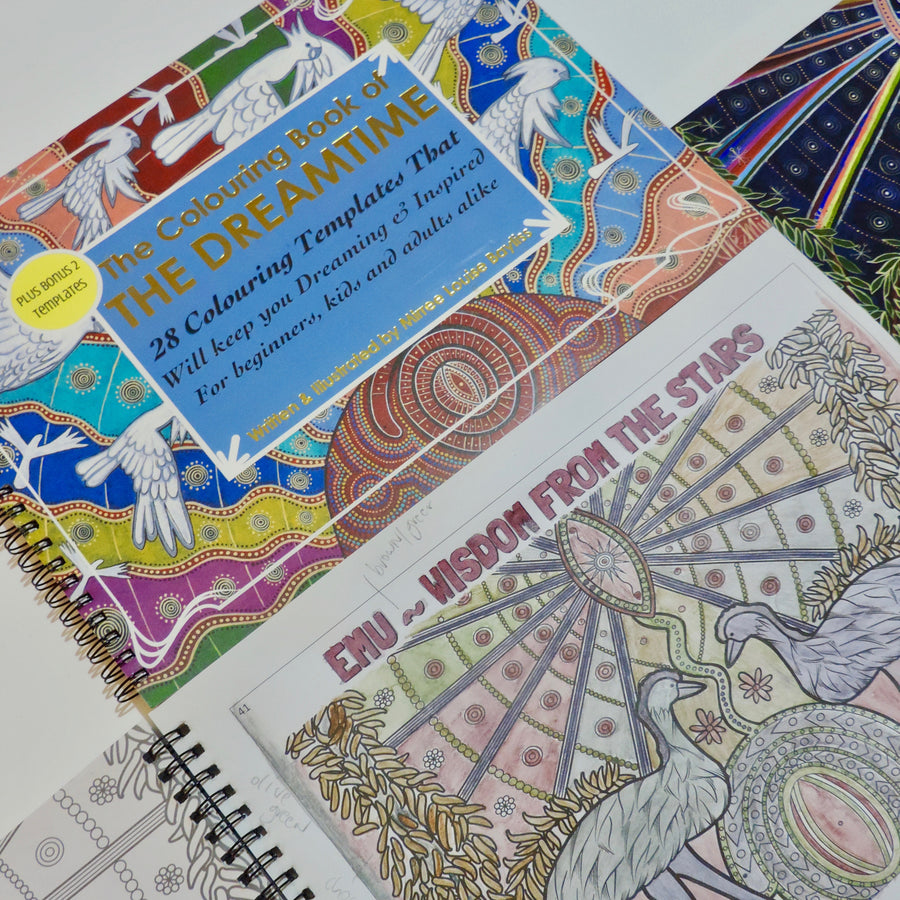 The Colouring Book of
THE DREAMTIME
28 Colouring Templates That
Will keep you Dreaming & Inspired
For beginners, kids and adults alike
Written & Illustrated by Mirree Louise Bayliss
PLUS BONUS 2
Templates
EMU ~ WISDOM FROM THE STARS
brown/green
41
olive
green